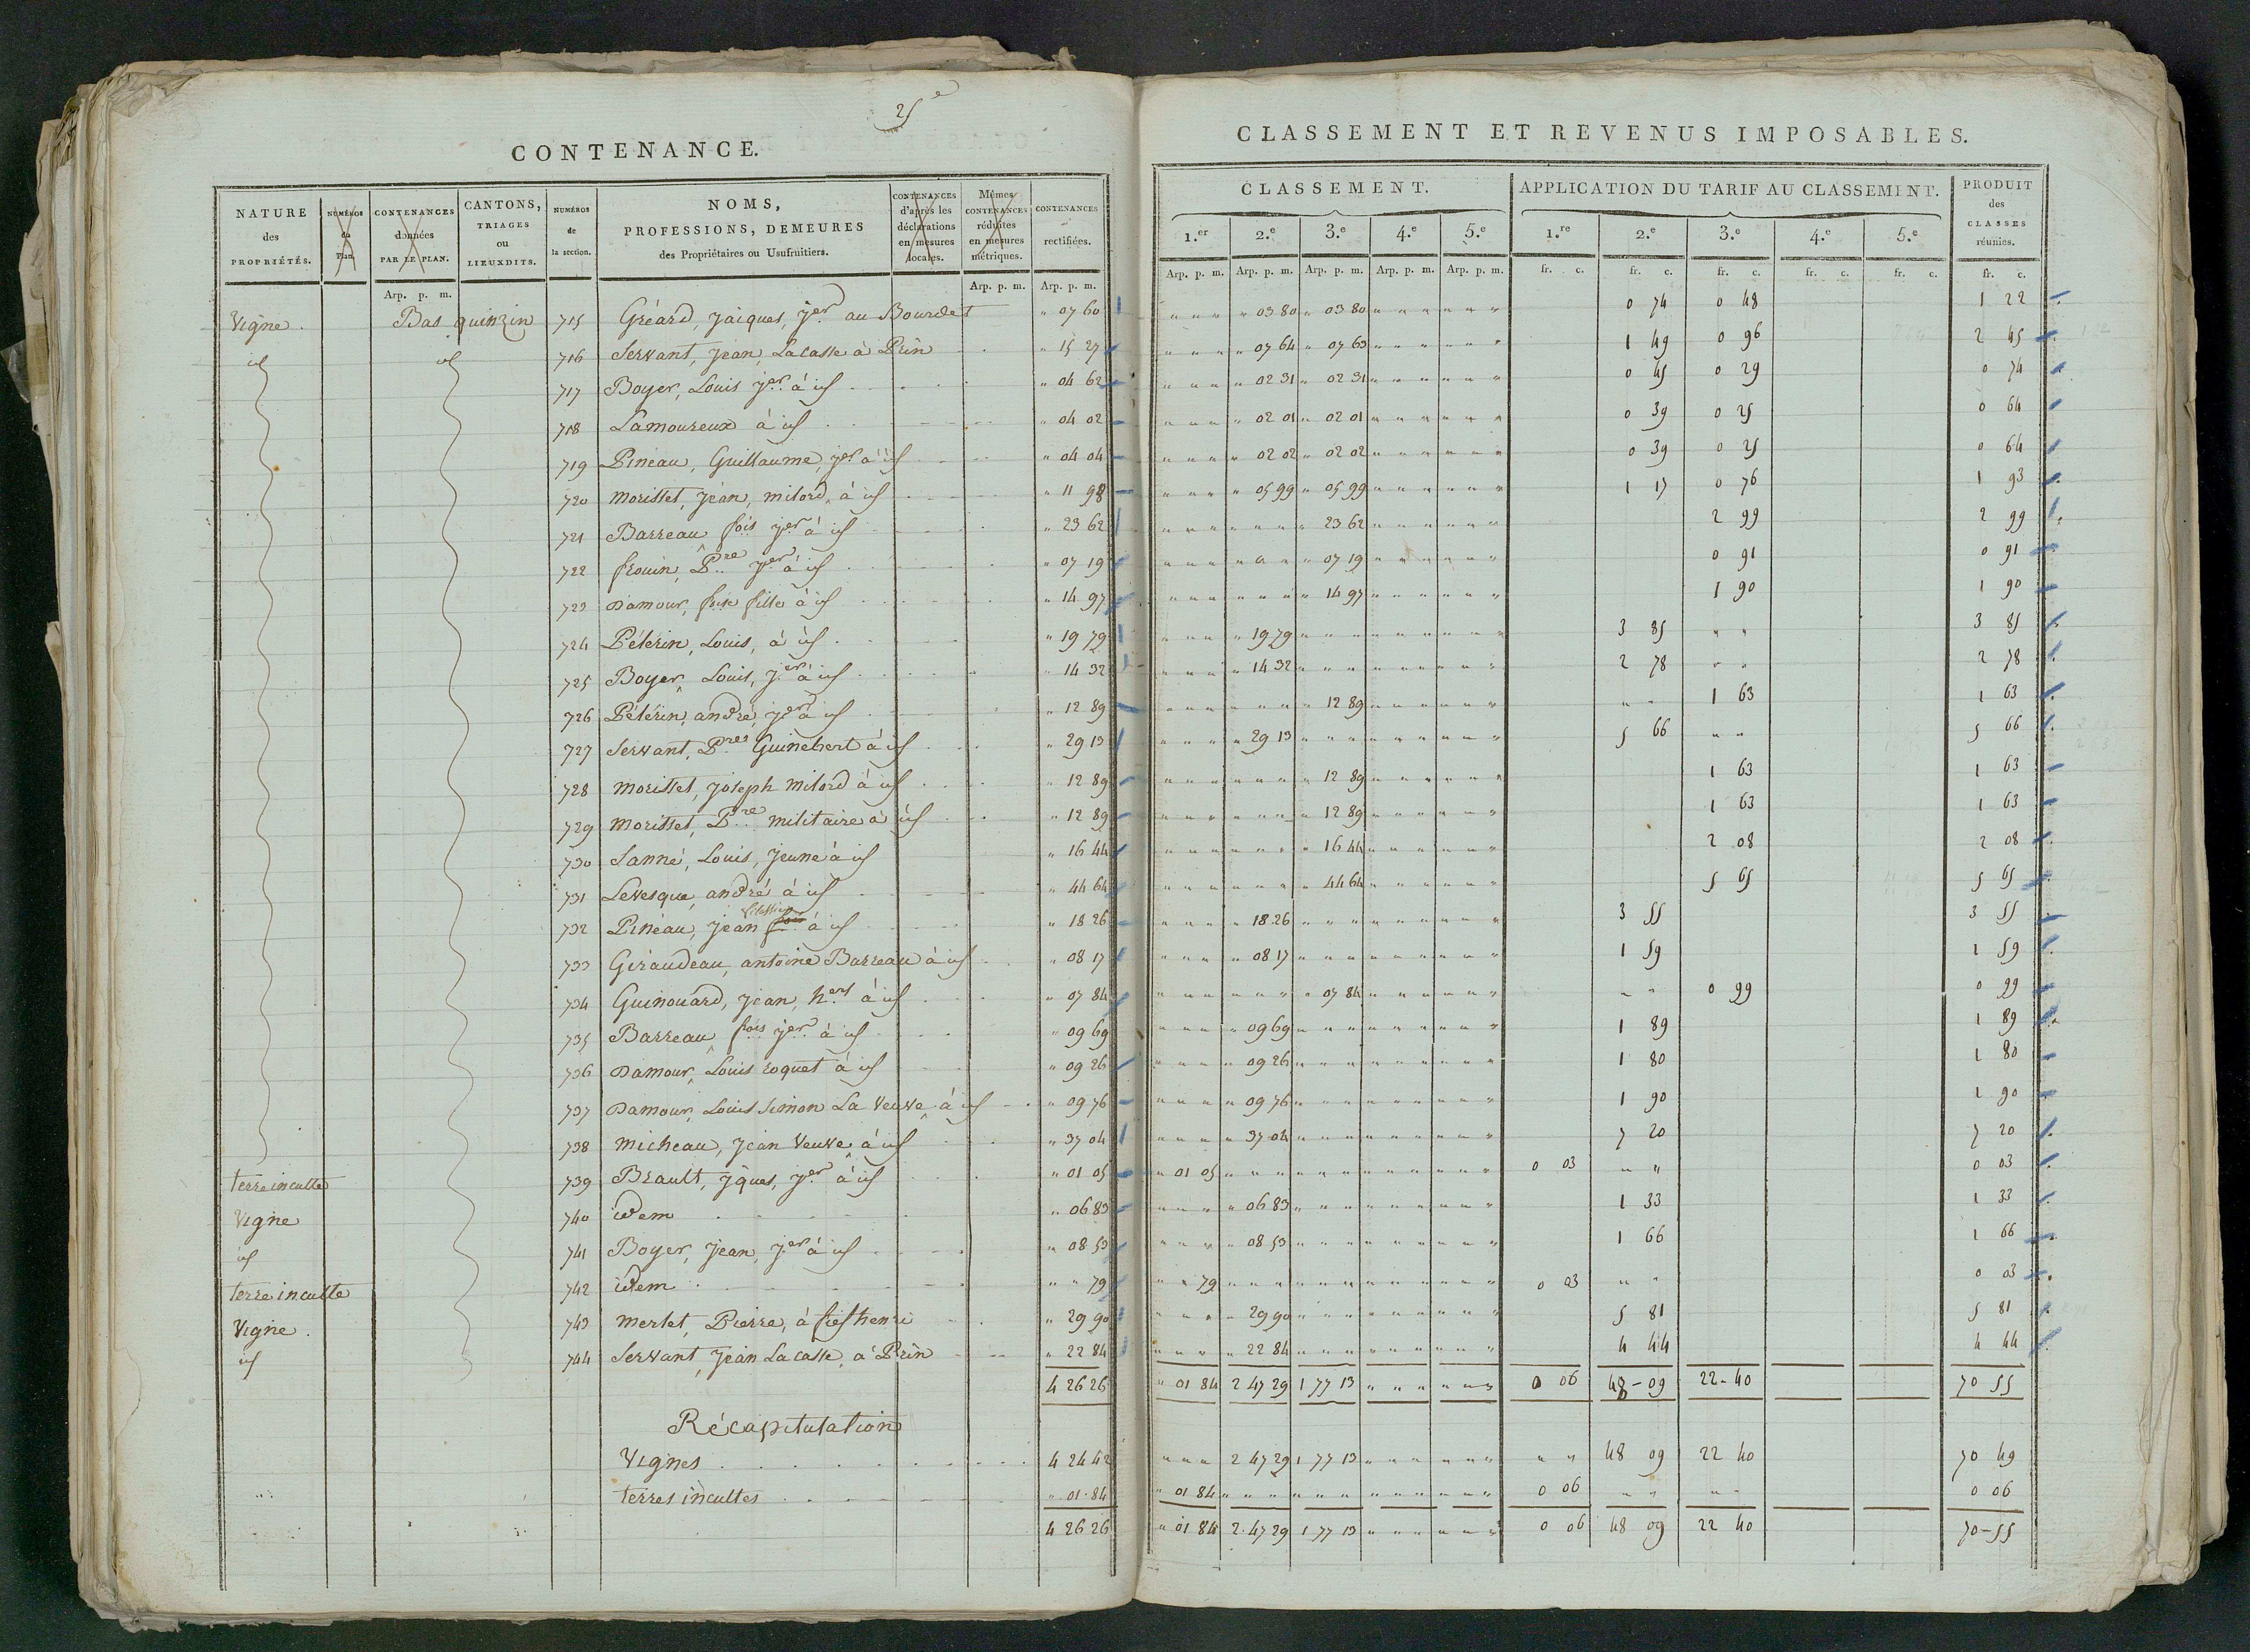 25e
CONTENANCE.
NATURE des PROPRIÉTÉS. | NUMÉROS du Plan. | CONTENANCES données PAR LE PLAN. | CANTONS, TRIAGES ou LIEUXDITS. | NUMÉROS de la section. | NOMS, PROFESSIONS, DEMEURES des Propriétaires ou Usufruitiers. | CONTENANCES d'après les déclarations en mesures locales. | Mêmes CONTENANCES réduites en mesures métriques. | CONTENANCES rectifiées.
Arp. p. m. | Arp. p. m. | Arp. p. m.
Vigne. | Bas quinzin | 715 | Gréard, Jacques, Jer au Bourdet | " 07 60
id | id | 716 | Servant, Jean, Lacasse à Prin | " 15 27
717 | Boyer, Louis Jer à id | " 04 62
718 | Lamoureux à id | " 04 02
719 | Pineau, Guillaume, Jer à id | " 04 04
720 | Morisset, Jean, milord, à id | " 11 98
721 | Barreau fois Jer à id | " 23 62
722 | frouin, Pre Jer à id | " 07 19
723 | Damour, foise fille à id | " 14 97
724 | Pélérin, Louis, à id | " 19 79
725 | Boyer, Louis, Jer à id | " 14 32
726 | Pélérin, andré, Jer à id | " 12 89
727 | Servant, Pre Guinebert à id | " 29 13
728 | Morisset, Joseph Milord à id | " 12 89
729 | Morisset, Pre militaire à id | " 12 89
730 | Sanné, Louis, Jeune à id | " 16 44
731 | Levesque, andré à id | " 44 64
732 | Pineau, Jean à id | " 18 26
733 | Giraudeau, antoine Barreau à id | " 08 17
734 | Guinouard, Jean, hers à id | " 07 84
735 | Barreau fois Jer à id | " 09 69
736 | Damour, Louis roquet à id | " 09 26
737 | Damour, Louis Simon La Veuve à id | " 09 76
738 | Micheau, Jean Veuve à id | " 37 04
terre inculte | 739 | Brault, Jques, Jer à id | " 01 05
Vigne | 740 | idem | " 06 83
id | 741 | Boyer, Jean, Jer à id | " 08 53
terre inculte | 742 | idem | " " 79
Vigne. | 743 | Merlet, Pierre, à fief henri | " 29 90
id | 744 | Servant, Jean Lacasse, à Prin | " 22 84
4 26 26
Récapitulation
Vignes | 4 24 42
terres incultes | " 01 84
4 26 26
CLASSEMENT ET REVENUS IMPOSABLES.
CLASSEMENT. | APPLICATION DU TARIF AU CLASSEMENT. | PRODUIT des CLASSES réunies.
1.er | 2.e | 3.e | 4.e | 5.e | 1.re | 2.e | 3.e | 4.e | 5.e
Arp. p. m. | Arp. p. m. | Arp. p. m. | Arp. p. m. | Arp. p. m. | fr. c. | fr. c. | fr. c. | fr. c. | fr. c. | fr. c.
" 03 80 | " 03 80 | 0 74 | 0 48 | 1 22
" 07 64 | " 07 63 | 1 49 | 0 96 | 2 45
" 02 31 | " 02 31 | 0 45 | 0 29 | 0 74
" 02 01 | " 02 01 | 0 39 | 0 25 | 0 64
" 02 02 | " 02 02 | 0 39 | 0 25 | 0 64
" 05 99 | " 05 99 | 1 17 | 0 76 | 1 93
" 23 62 | 2 99 | 2 99
" 07 19 | 0 91 | 0 91
" 14 97 | 1 90 | 1 90
" 19 79 | 3 85 | " " | 3 85
" 14 32 | 2 78 | " " | 2 78
" 12 89 | " " | 1 63 | 1 63
" 29 13 | 5 66 | " " | 5 66
" 12 89 | 1 63 | 1 63
" 12 89 | 1 63 | 1 63
" 16 44 | 2 08 | 2 08
" 44 64 | 5 65 | 5 65
" 18 26 | 3 55 | 3 55
" 08 17 | 1 59 | 1 59
" 07 84 | " " | 0 99 | 0 99
" 09 69 | 1 89 | 1 89
" 09 26 | 1 80 | 1 80
" 09 76 | 1 90 | 1 90
" 37 04 | 7 20 | 7 20
" 01 05 | 0 03 | " " | 0 03
" 06 83 | 1 33 | 1 33
" 08 53 | 1 66 | 1 66
" " 79 | 0 03 | " " | 0 03
" 29 90 | 5 81 | 5 81
" 22 84 | 4 44 | 4 44
" 01 84 | 2 47 29 | 1 77 13 | 0 06 | 48-09 | 22-40 | 70 55
2 47 29 | 1 77 13 | " " | 48 09 | 22 40 | 70 49
" 01 84 | 0 06 | " " | " " | 0 06
" 01 84 | 2 47 29 | 1 77 13 | 0 06 | 48 09 | 22 40 | 70-55